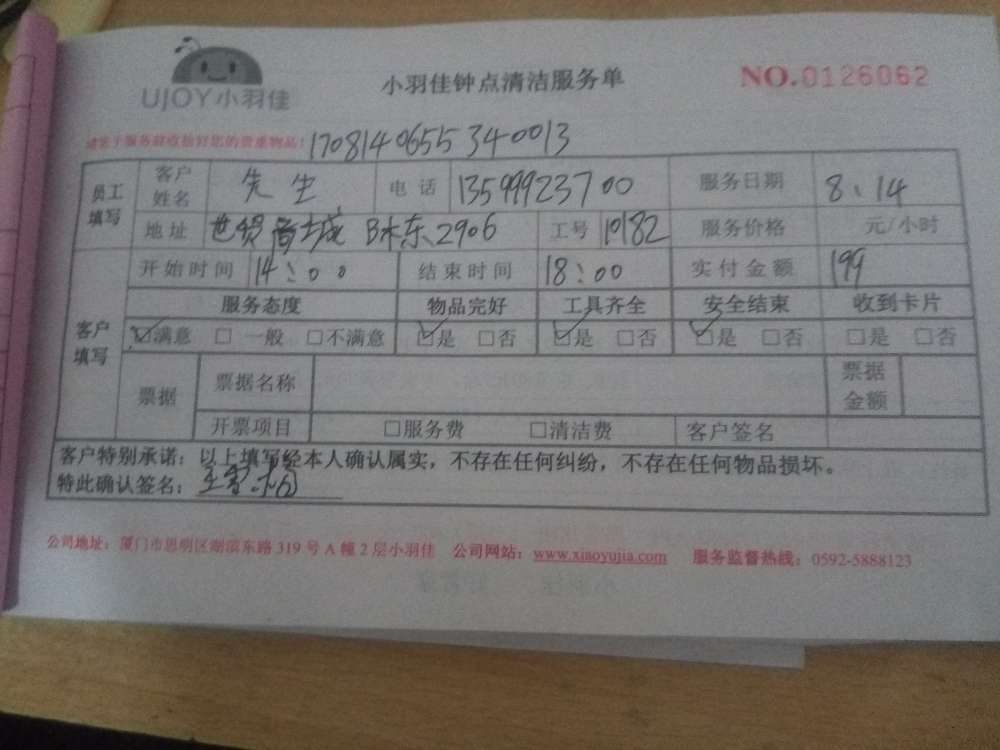 UJOY小羽佳
小羽佳钟点清洁服务单
NO.0126062
请客于服务前收拾好您的贵重物品！ 170814065534 0013
员工填写
客户姓名 先生 电话 13599923700 服务日期 8.14
地址 世贸 城 B 东2906 工号 10182 服务价格 元/小时
客户填写
开始时间 14：00 结束时间 18：00 实付金额 199
服务态度 物品完好 工具齐全 安全结束 收到卡片
☑满意 □一般 □不满意 ☑是 □否 ☑是 □否 ☑是 □否 □是 □否
票据 票据名称 票据金额
开票项目 □服务费 □清洁费 客户签名
客户特别承诺：以上填写经本人确认属实，不存在任何纠纷，不存在任何物品损坏。
特此确认签名：
公司地址：厦门市思明区湖滨东路 319 号 A 幢 2 层小羽佳 公司网站：www.xiaoyujia.com 服务监督热线：0592-5888123